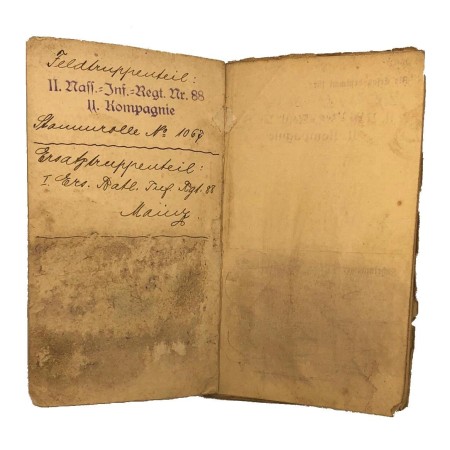 Feldtruppenteil:
II. Nass.-Inf.-Regt. Nr. 88
11. Kompagnie
Stammrolle No 1068
Ersatztruppenteil:
I. Ers. Batl. Inf. Rgt. 88
Mainz